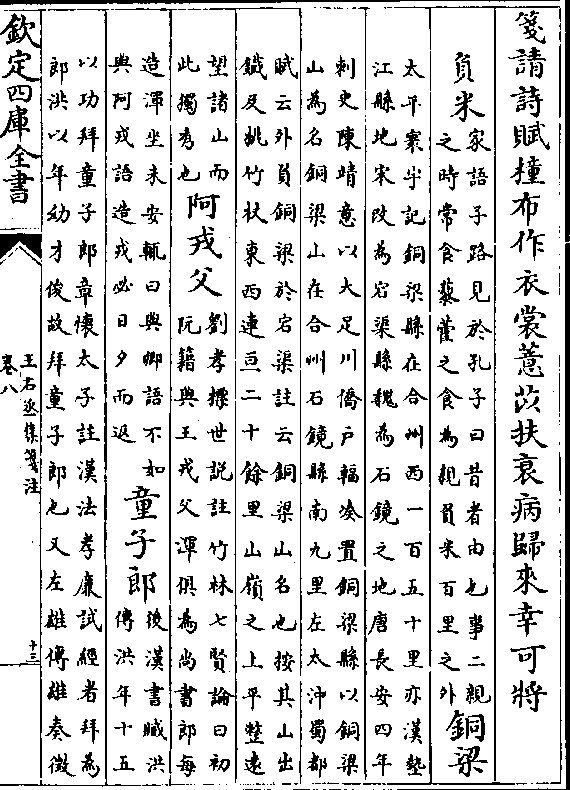 箋請詩賦橦布作衣裳薏苡扶衰病歸來幸可將
負米
家語子路見於孔子曰昔者由也事二親
之時常食藜藿之食為親負米百里之外
銅梁
太平寰宇記銅梁縣在合州西一百五十里亦漢墊
江縣地宋改為宕渠縣魏為石鏡之地唐長安四年
刺史陳靖意以大足川僑戶輻凑置銅梁縣以銅梁
山為名銅梁山在合州石鏡縣南九里左太沖蜀都
賦云外負銅梁於宕渠註云銅梁山名也按其山出
鐵及桃竹杖東西連亘二十餘里山嶺之上平整遠
望諸山而
此獨秀也
阿戎父
劉孝標世說註竹林七賢論曰初
阮籍與王戎父渾俱為尚書郎每
造渾坐未安輒曰與卿語不如
與阿戎語造戎必日夕而返
童子郎
後漢書臧洪
傳洪年十五
以功拜童子郎章懷太子註漢法孝廉試經者拜為
郎洪以年幼才俊故拜童子郎也又左雄傳雄奏徴
欽定四庫全書
王右丞集箋注
卷八
十三